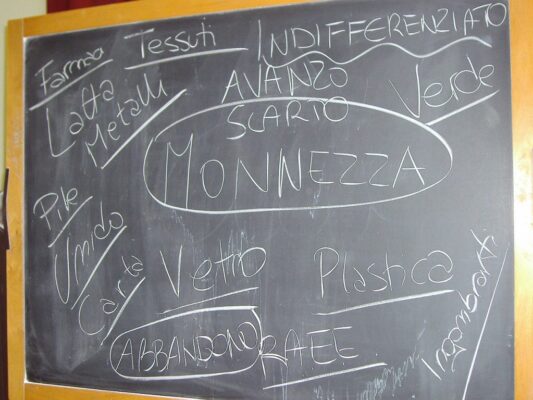 Farmaci
Tessuti
INDIFFERENZIATO
Latta
Metalli
AVANZO
SCARTO
Verde
MONNEZZA
Pile
Umido
Carta
Vetro
Plastica
Ingombranti
ABBANDONO
RAEE